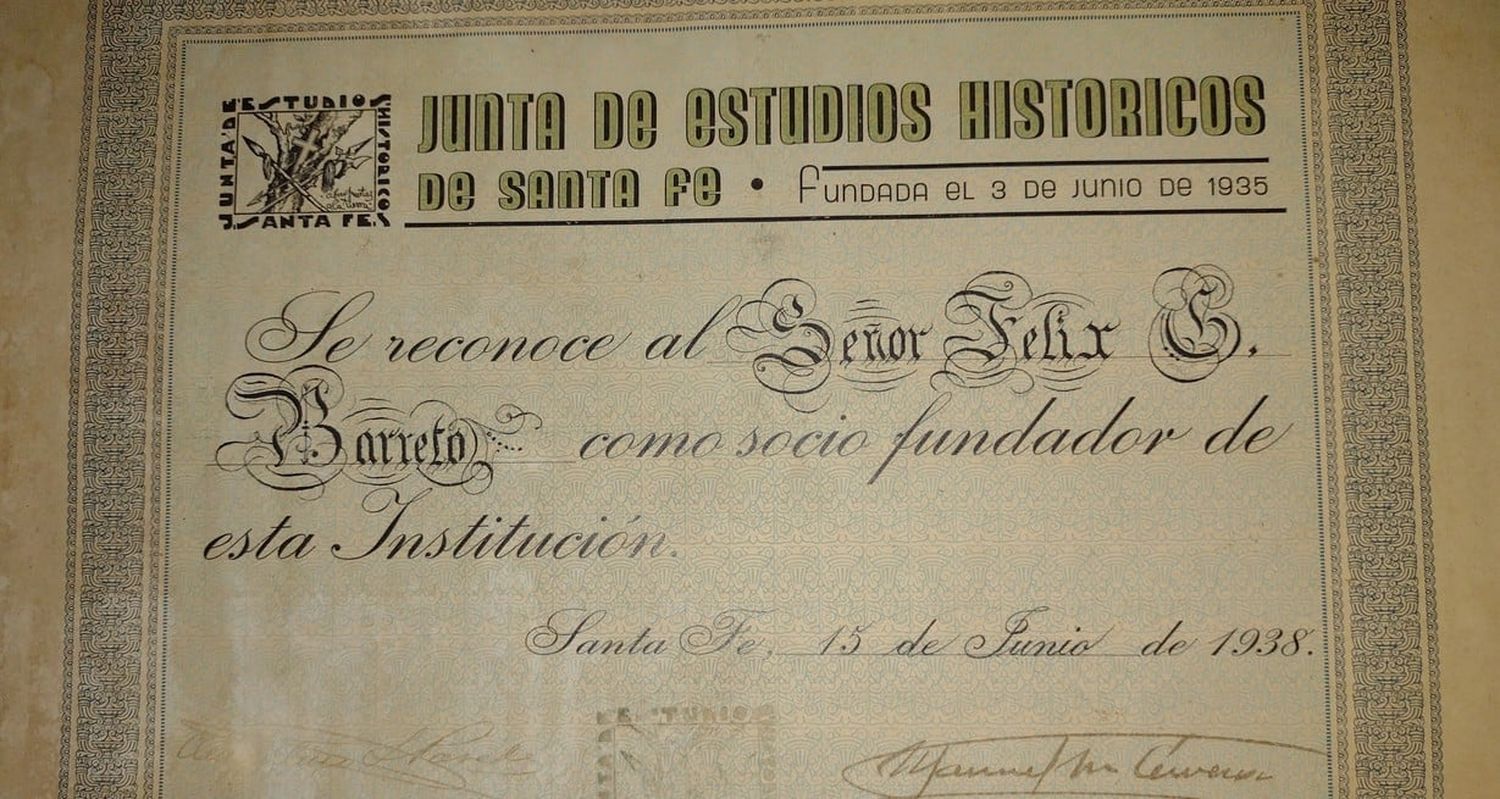 JUNTA DE ESTUDIOS HISTORICOS
SANTA FE
JUNTA DE ESTUDIOS HISTORICOS
DE SANTA FE • FUNDADA EL 3 DE JUNIO DE 1935
Se reconoce al Señor Felix G.
Barreto como socio fundador de
esta Institución.
Santa Fe, 15 de Junio de 1938.
ESTUDIOS
Manuel M Cervera